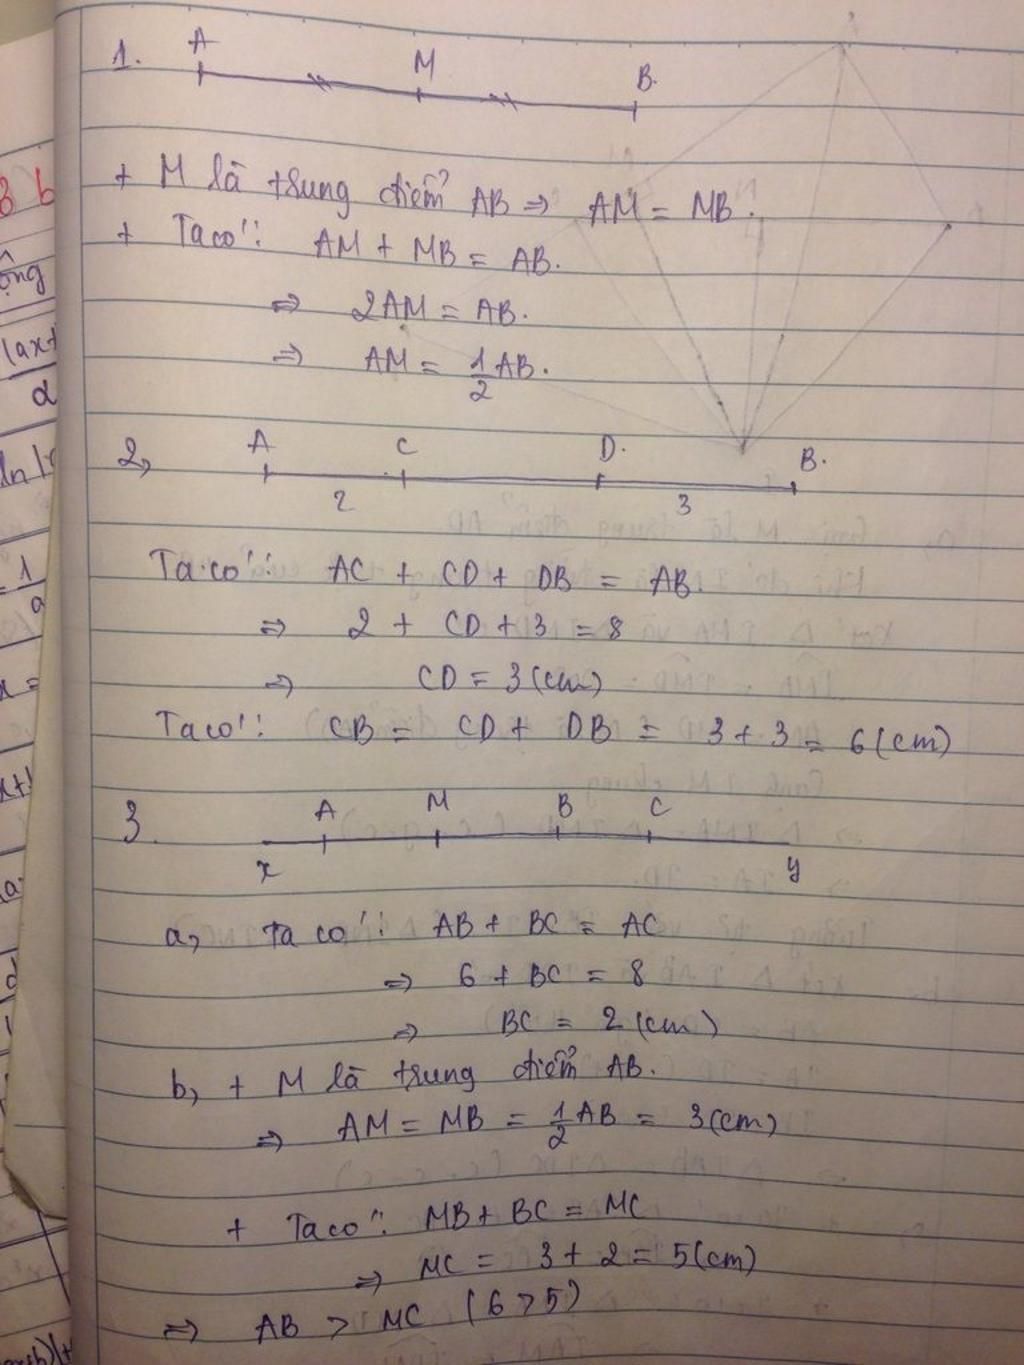 1. A M B.
+ M là trung điểm AB ⇒ AM = MB.
+ Ta có: AM + MB = AB.
⇒ 2AM = AB.
⇒ AM = 1/2 AB.
2, A C D. B.
2 3
Ta có: AC + CD + DB = AB.
⇒ 2 + CD + 3 = 8
⇒ CD = 3 (cm)
Ta có: CB = CD + DB = 3 + 3 = 6 (cm)
3. A M B C
x y
a, Ta có: AB + BC = AC
⇒ 6 + BC = 8
⇒ BC = 2 (cm)
b, + M là trung điểm AB.
⇒ AM = MB = 1/2 AB = 3 (cm)
+ Ta có: MB + BC = MC
⇒ MC = 3 + 2 = 5 (cm)
⇒ AB > MC (6 > 5)